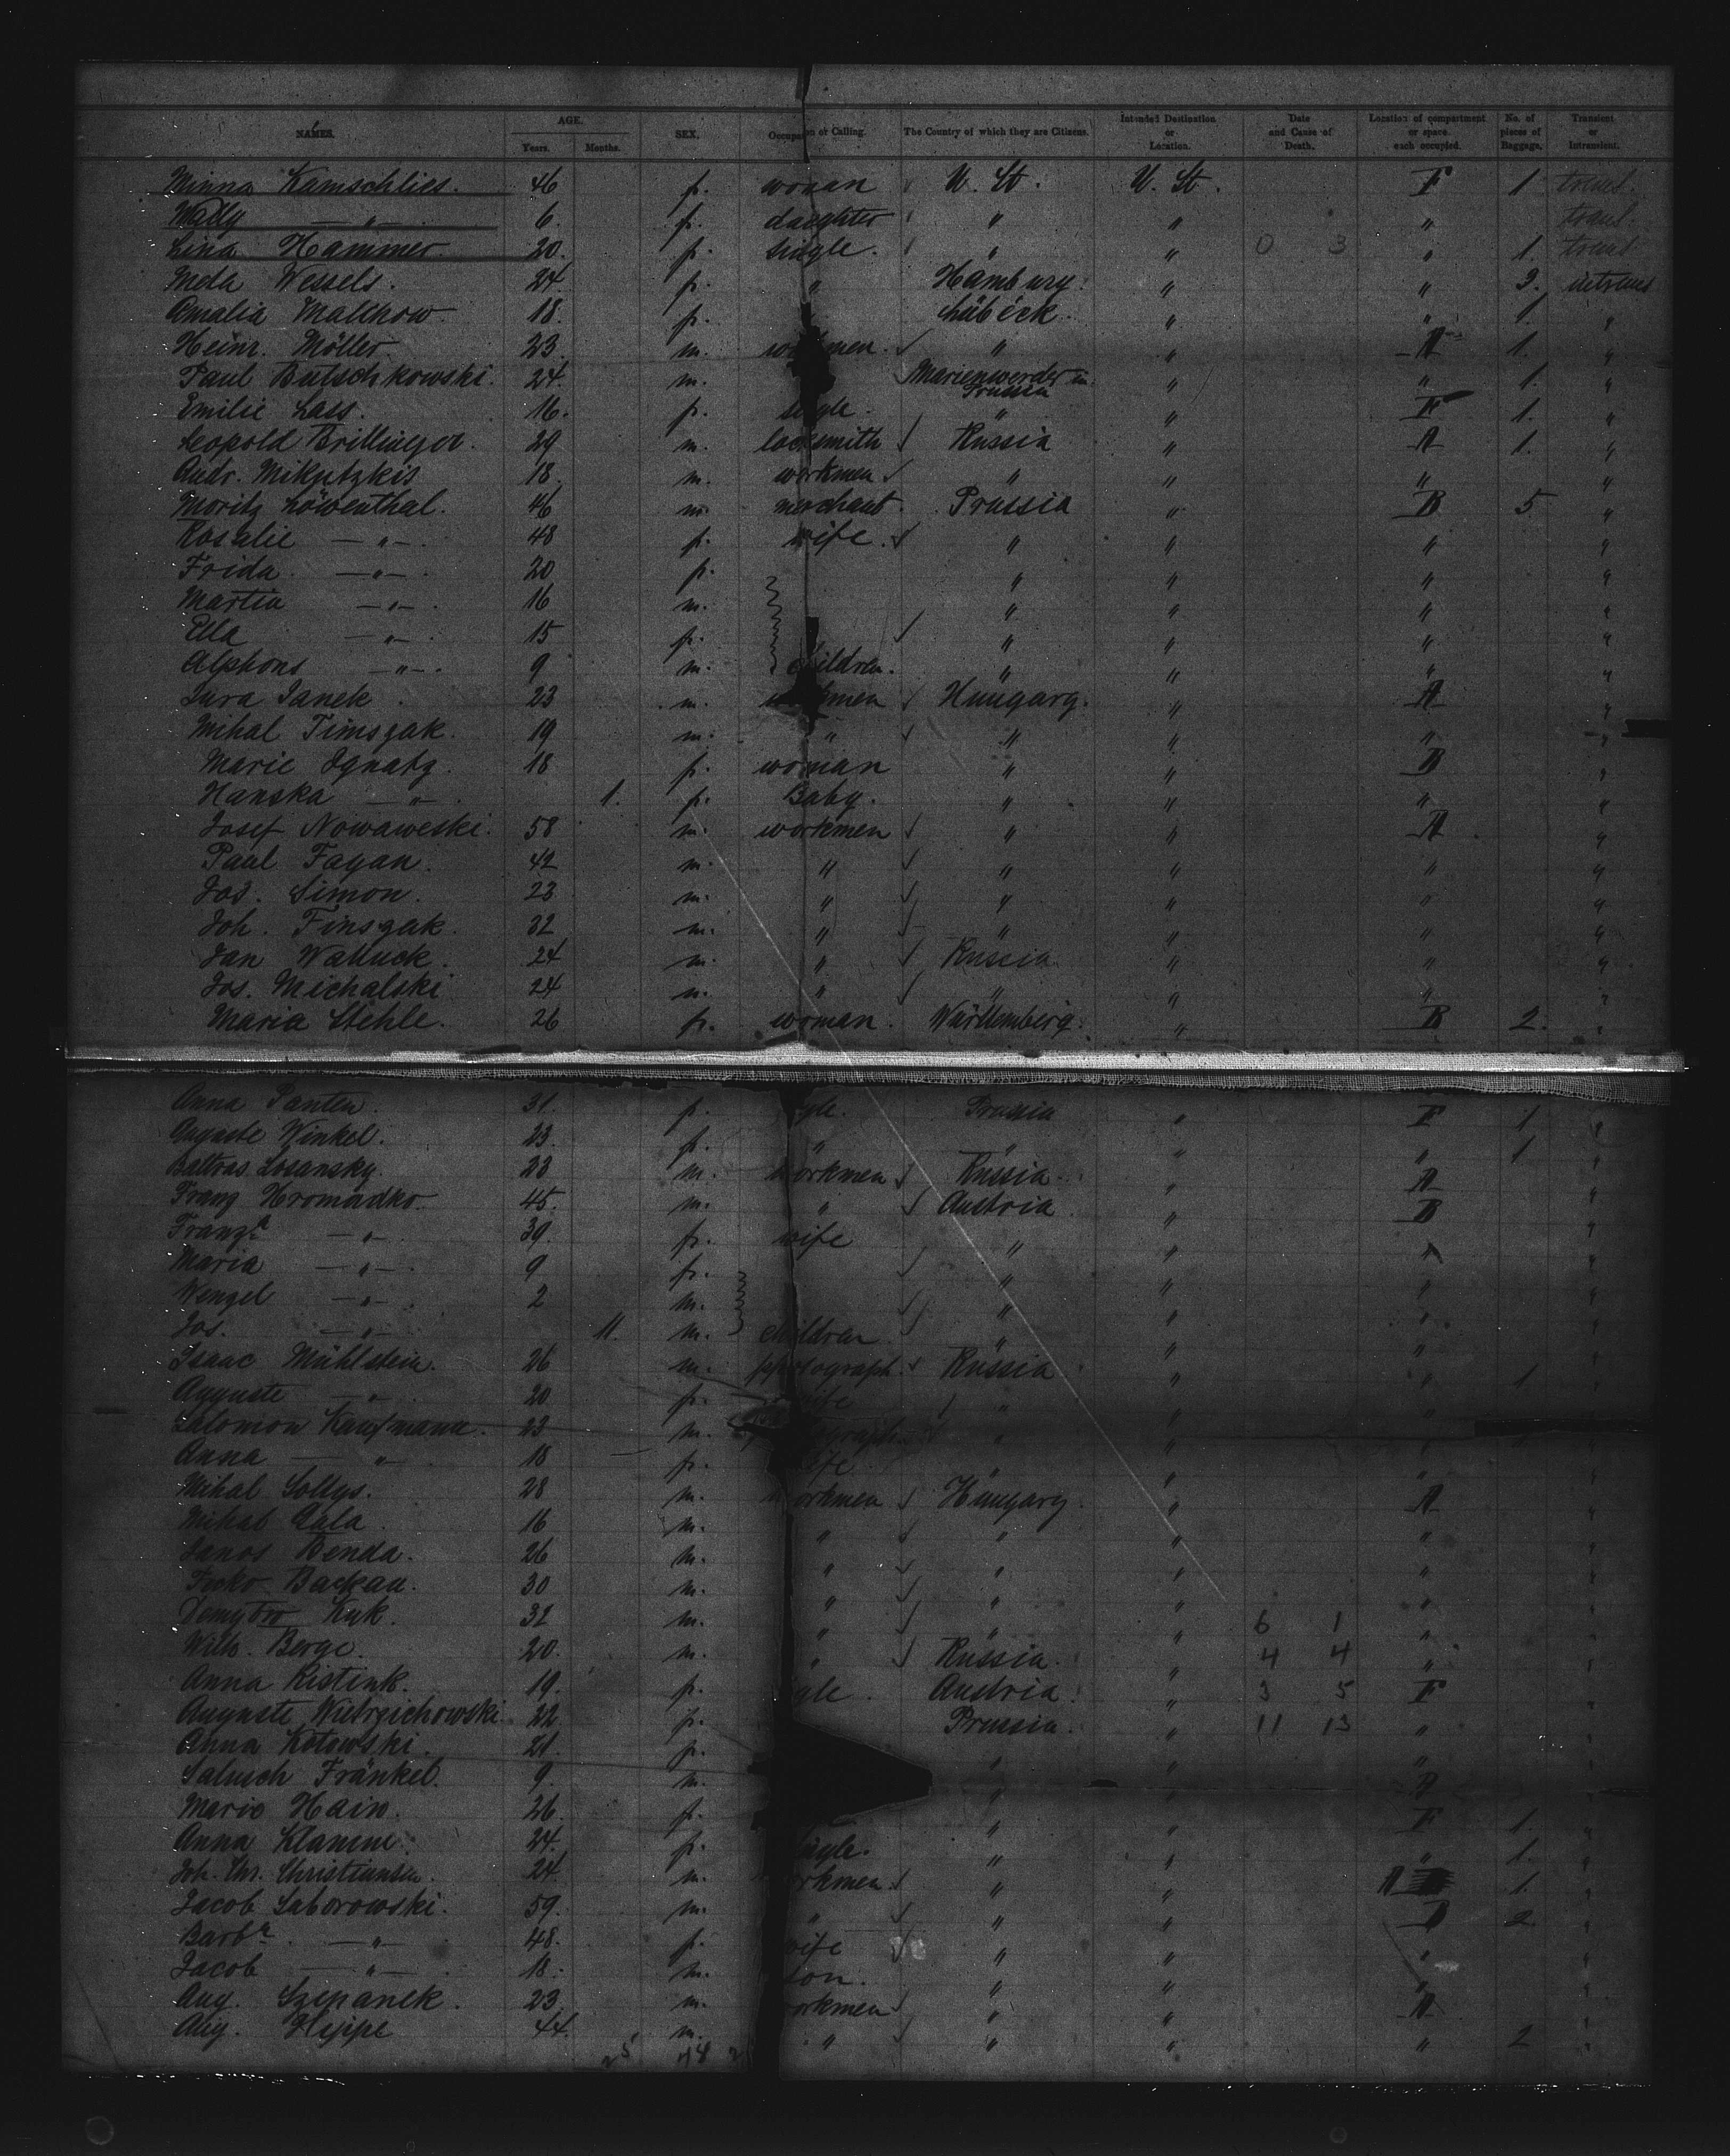 NAMES. AGE. Years. Months. SEX. Occupation or Calling. The Country of which they are Citizens. Intended Destination or Location. Date and Cause of Death. Location of compartment or space each occupied. No. of pieces of Baggage. Transient or Intransient.
Minna Kamschlies. 46 f. woman U. St. U. St. F 1
Wally —"— 6. f. daughter " " "
Lina Hammer. 20. f. single. " " 0 3 " 1.
Meta Wessels. 24. f. " Hamburg. " " 3. intrans
Amalia Malchow. 18. f. Lübeck. " " 1. "
Heinr. Möller. 23. m. " " A 1. "
Paul Butschkowski. 24. m. Marienwerder in Prussia " " 1. "
Emilie Lass. 16. f. " " F 1. "
Leopold Brillinger. 29 m. locksmith Russia " A 1. "
Andr. Mikutzkis 18. m. workmen. " " " "
Moritz Löwenthal. 46 m. merchant. Prussia " B 5 "
Rosalie —"—. 48 f. wife. " " " "
Frida. —"—. 20 f. " " " "
Martin —"—. 16 m. " " " "
Ella —"—. 15 f. " " " "
Alphons —"—. 9 m. children. " " " "
Jura Janek. 23 m. Hungary. " A "
Mihal Timszak. 19 m. " " " " "
Marie Ignatz. 18 f. woman " " B "
Hanska —"—. 1. f. Baby. " " " "
Josef Nowaweski. 58 m. workmen " " A "
Paul Fagan. 42 m. " " " " "
Jos. Simon. 23 m. " " " " "
Joh. Finszak. 32 m. " " " " "
Jan Walluck. 24 m. " Russia " " "
Jos. Michalski 24 m. " " " " "
Maria Stehle. 26 f. woman. Württemberg. " B 2. "
Anna Panten. 31. f. Prussia " F 1 "
Auguste Winkel. 23. f. " " " " 1 "
Baltras Losansky. 23 m. workmen Russia. " A "
Franz Hromadko. 45. m. " Austria. " B "
Franz.a —"—. 39. f. wife " " " "
Maria —"—. 9 f. " " " "
Wenzel —"—. 2 m. " " " "
Jos. —"—. 11. m. children. " " " "
Isaac Mühlstein. 26 m. photograph. Russia " " 1 "
Auguste —"—. 20 f. wife " " " "
Salomon Kaufmann. 23 m. " " " "
Anna —"—. 18 f. wife. " " " "
Mihal Soltys. 28 m. workmen Hungary. " A "
Mihal 16 m. " " " " "
Janos Benda. 26 m. " " " " "
Backau. 30 m. " " " " "
Kuk. 32 m. " " " 6 1 " "
Wilh. Berge. 20. m. " Russia. " 4 4 " "
Anna Ristink. 19. f. Austria. " 3 5 F "
Auguste 22. f. Prussia. " 11 13 " "
Anna Kotowski. 21. f. " " " "
Salusch Fränkel. 9. m. " " A "
Marie Hain. 26. f. " " F 1. "
Anna Klamm. 24. f. " " " 1. "
Joh. Chr. Christiansen. 24. m. workmen. " " A 1. "
Jacob Saborowski. 59. m. " " " B 2. "
Barb.a —"—. 48. f. wife " " " "
Jacob —"—. 18. m. son. " " " "
Aug. Szepanek. 23. m. workmen " " A "
Aug. Heppe 44. m. " " " " 2 "